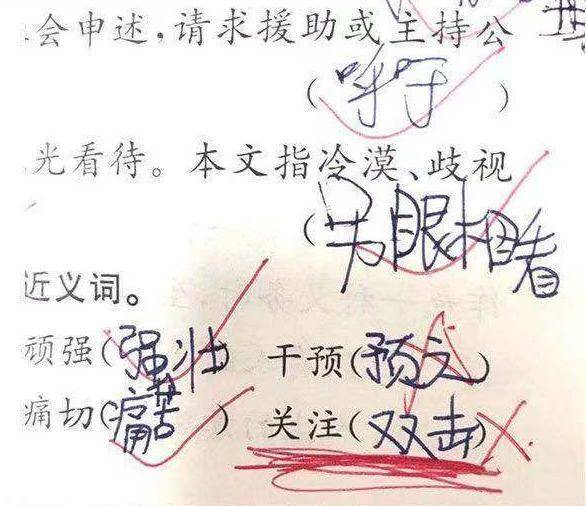 会申述,请求援助或主持公
(呼吁)
光看待。本文指冷漠、歧视
(另眼相看
近义词。
顽强(强壮) 干预(预文)
痛切(痛苦) 关注(双击)